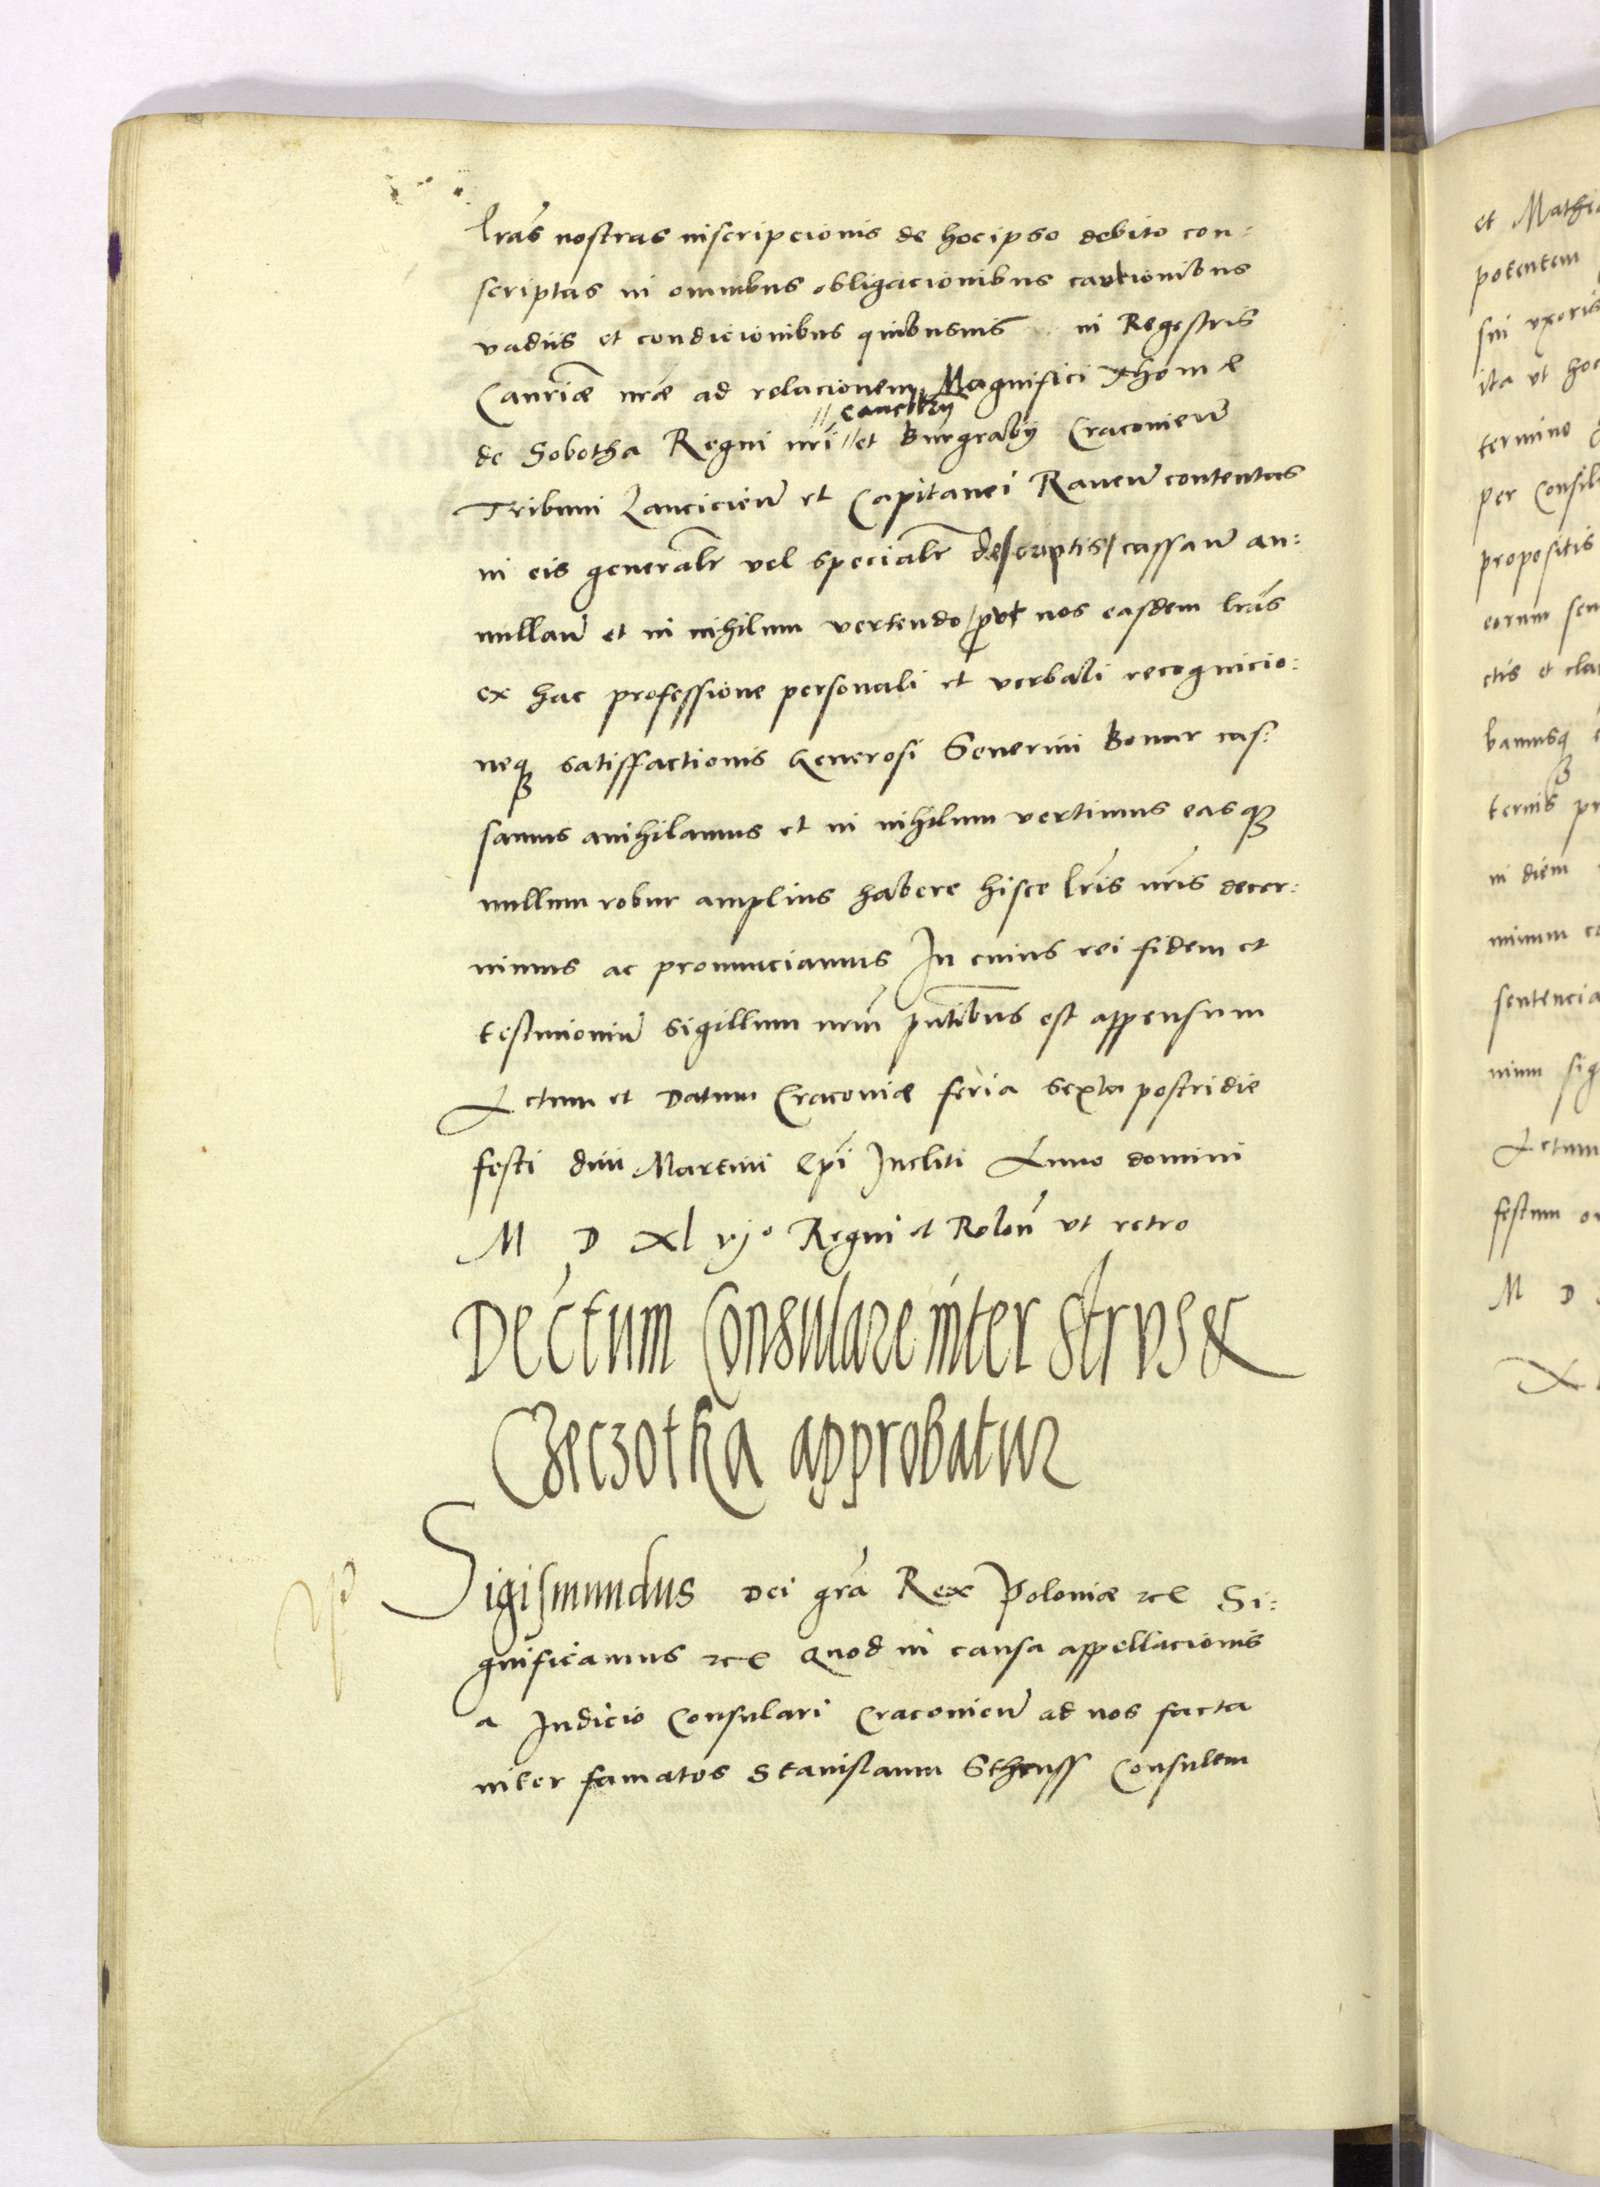 lras nostras inscripcionis de hocipso debito con:
scriptas in omnibus obligacionibus cautionibus
vadiis et condicionibus quibusuis in Regestris
Canriæ nræ ad relacionem Magnifici Thomæ
cancellarij
de Sobotha Regni nri et Burgrabij Cracovien
Tribuni Lancicien et Capitanei Raven contentas
in eis generalr vel specialr descriptis cassan an:
nullan et in nihilum vertendo put nos easdem lras
ex hac professione personali et verbali recognicio:
neq satisfactionis Generosi Severini Bonar cas:
samus anihilamus et in nihilum vertimus easq
nullum robur amplius habere hisce lris nris decer:
nimus ac pronunciamus In cuius rei fidem et
testimoniu sigillum nrm pntibus est appensum
Actum et Datum Cracoviæ feria sexta postridie
festi divi Martini Epi Incliti Anno domini
M D Xl vjo Regni et Rolon ut retro
Dectum Consulare inter Strvs &
Czeczotka approbatur
Sigismundus Dei gra Rex Poloniæ &c Si:
gnificamus &c Quod in causa appellacionis
a Iudicio Consulari Cracovien ad nos facta
inter famatos Stanislaum Consulem
et
potentem
sui uxoris
ita ut hoc
termino
per
propositis
eorum
ctis et
bamusq
in diem
minum
sentencia
nium sig
Actum
festum
M D